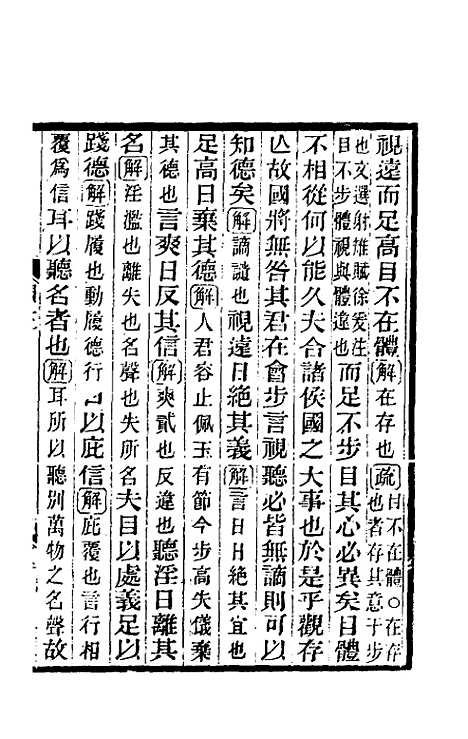 視遠而足高目不在體解在存也疏目不在體○在存
也者存其意于步
也文選射雉賦徐爰注
目不步體視與體違也而足不步目其心必異矣目體
不相從何以能久夫合諸侯國之大事也於是乎觀存
亾故國將無咎其君在會步言視聽必皆無謫則可以
知德矣解謫譴也視遠日絕其義解言日日絕其宜也
足高日棄其德解人君容止佩玉有節今步高失儀棄
其德也言爽日反其信解爽貳也反違也聽淫日離其
名解淫濫也離失也名聲也失所名夫目以處義足以
踐德解踐履也動履德行口以庇信解庇覆也言行相
覆為信耳以聽名者也解耳所以聽別萬物之名聲故